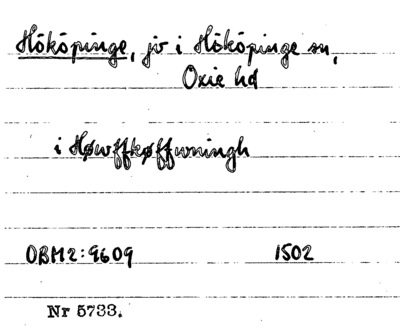 Hököpinge, jv i Hököpinge sn,
Oxie hd
i Høwffkøffwningh
ØBM2:9609 1502
Nr 5733.